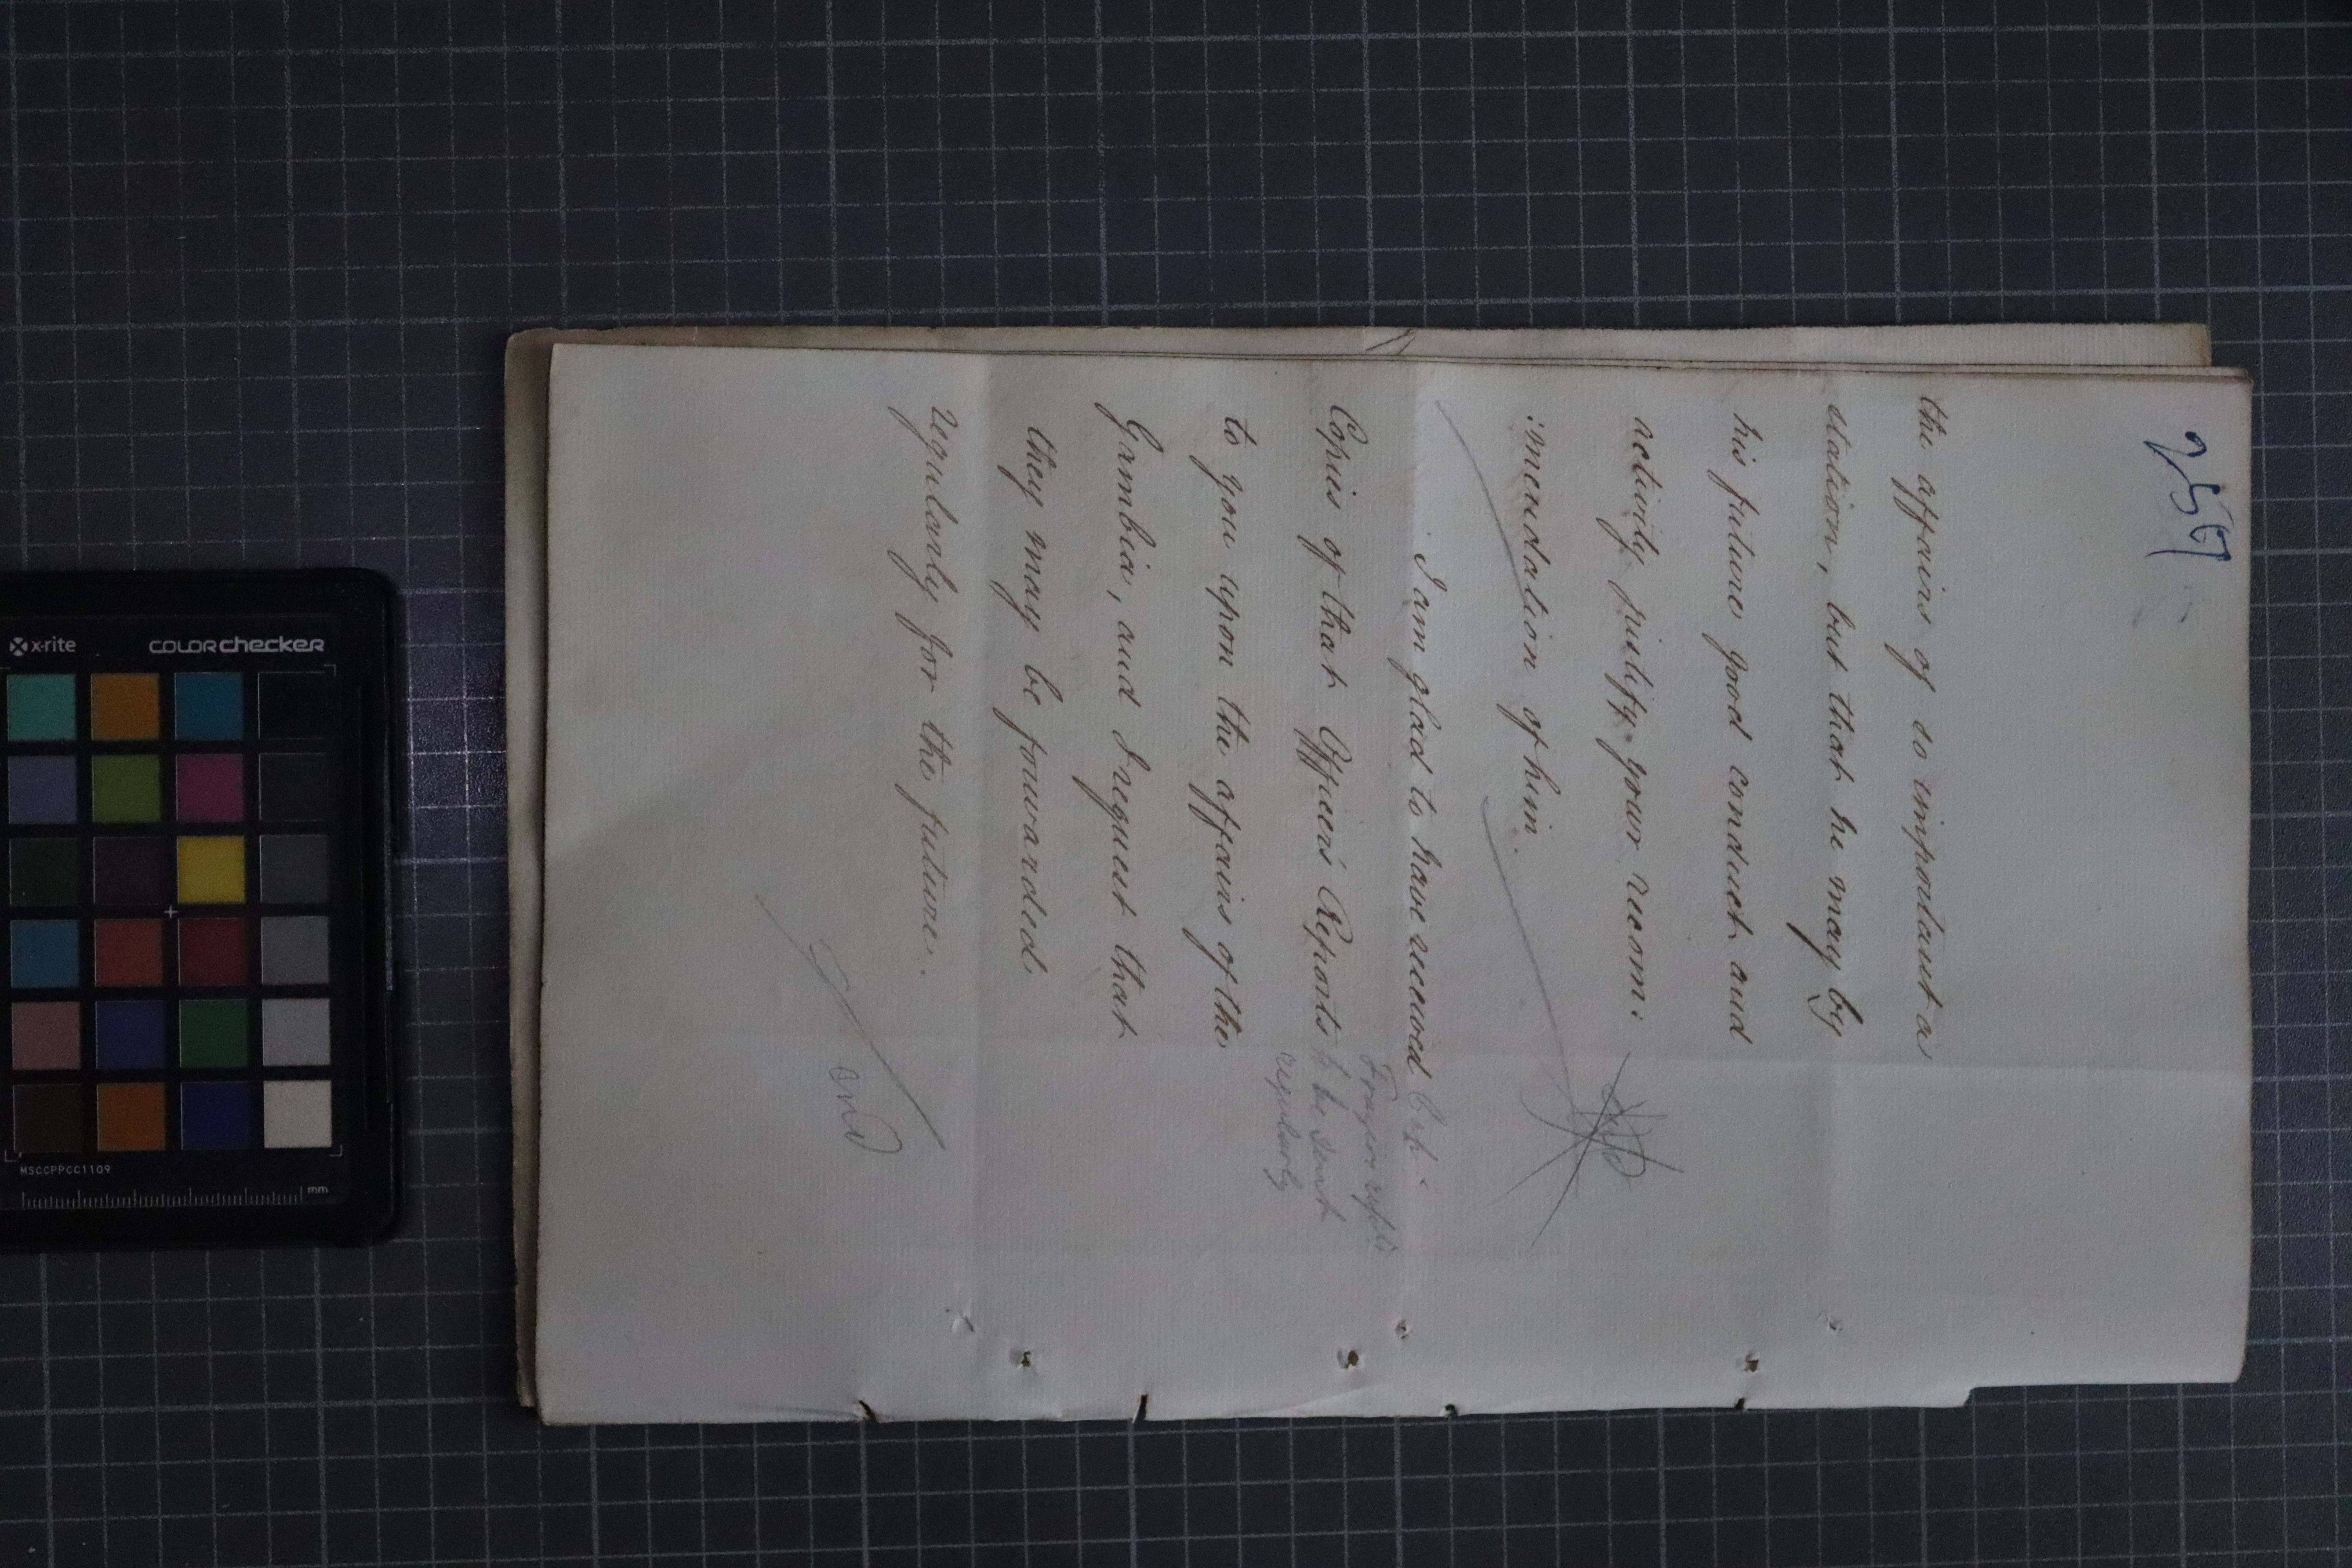 257
the affairs of so important a
station, but that he may by
his future good conduct and
activity justify your recom:
:mendation of him.
I am glad to have received
Copies of that Officer's Reports
to you upon the affairs of the
Gambia, and I request that
they may be forwarded
regularly for the future.
to be sent
regularly
and
x-rite
COLORchecker
MSCCPPCC1109
mm